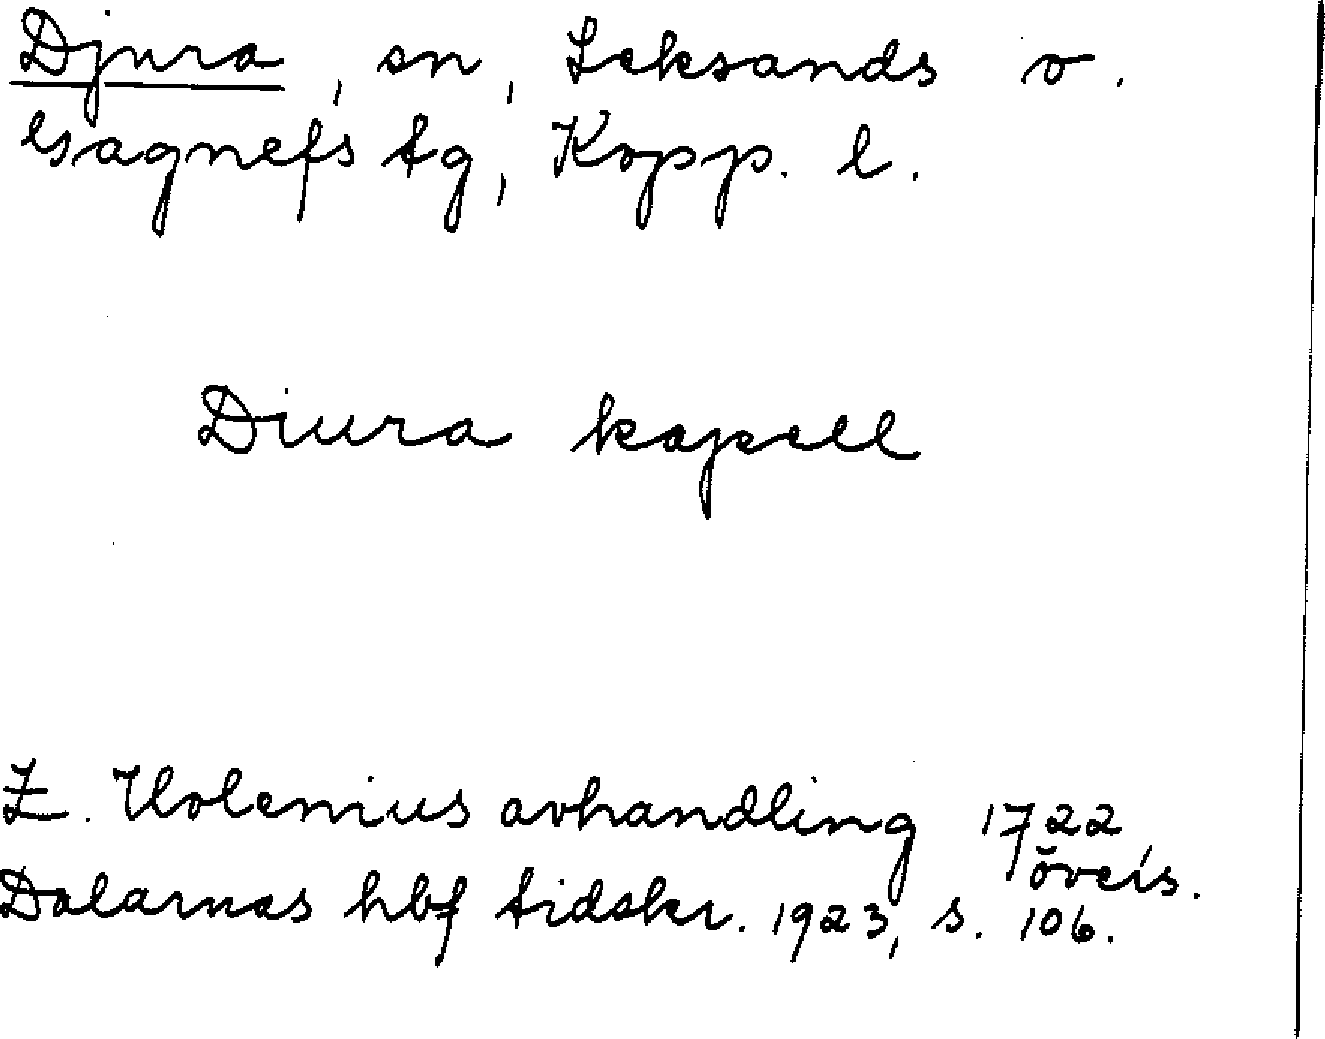 Djura, sn, Leksands o.
Gagnefs tg, Kopp. l.
Diura kapell
Z. Holenius avhandling 1722
övers.
Dalarnas hbf tidskr. 1923, s. 106.